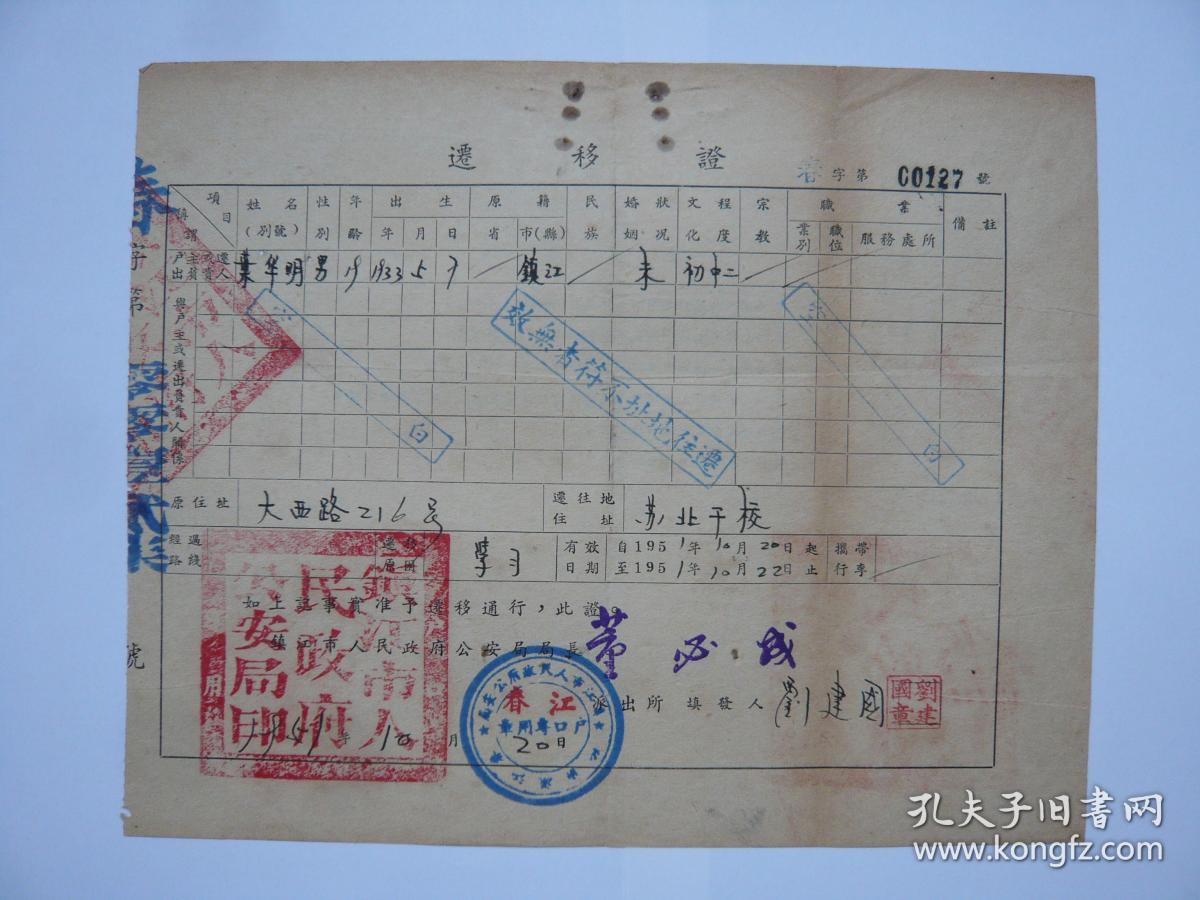 遷移證
春字第 00127 號
項目 姓名 性別 年齡 出生 原籍 民族 婚姻狀況 文化程度 宗教 職業 備註
填謂 (別號) 年 月 日 省 市(縣) 業別 職位 服務處所
戶主或遷出負責人 葉华明 男 19 1933 5 7 鎮江 未 初中二
與戶主或遷出負責人關係
空白
遷往地址不符者無效
空白
原住址 大西路216号 遷往地住址 苏北干校
經過路綫 遷移原因 學习 有效日期 自1951年10月20日起 至1951年10月22日止 攜帶行李
如上記事實准予遷移通行,此證。
鎮江市人民政府公安局局長 董必成
春江派出所 填發人 劉建國
劉建國章
1951年10月20日
鎮江市人民政府公安局印
戶口專用章
春字第
號
孔夫子旧书网
www.kongfz.com